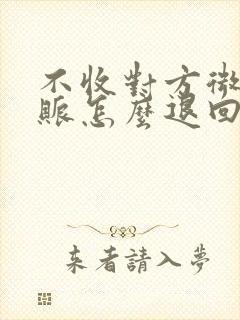 不收對方微
賬怎麼退回
来者請入夢